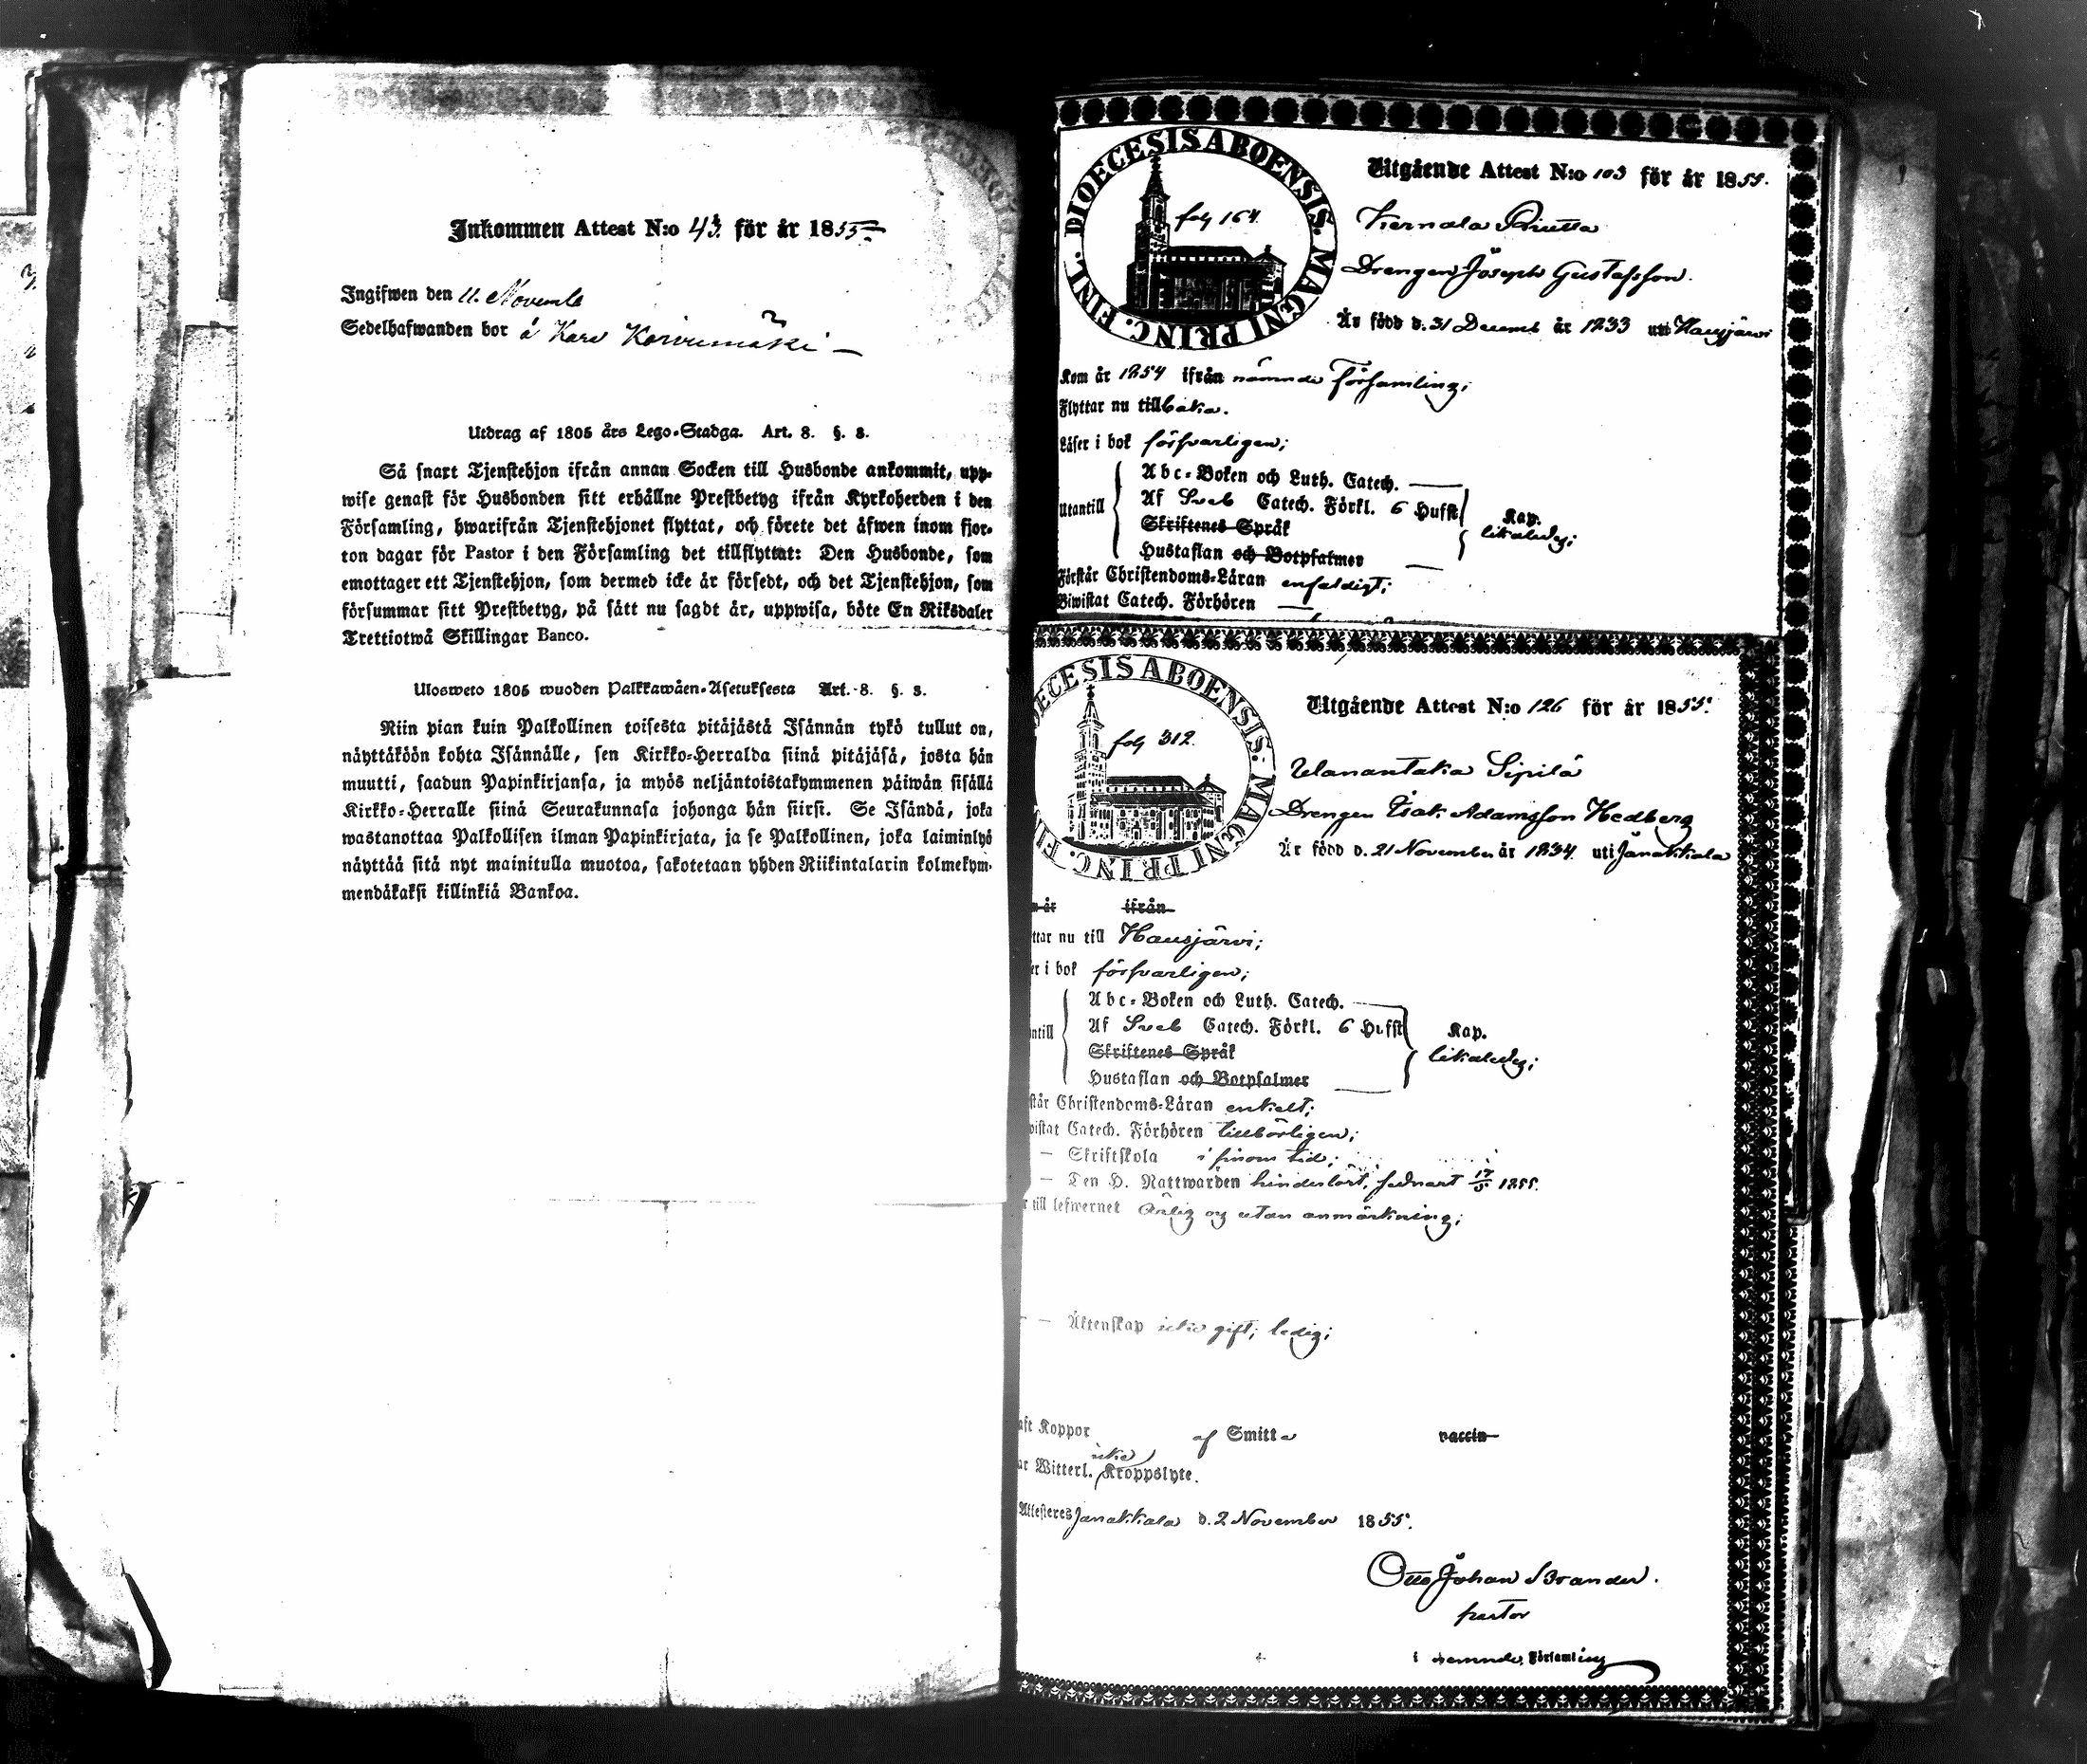 Inkommen Attest N:o 43. för år 1855.
Ingifwen den 11. Novemb
Sedelhafwanden bor å Kara Koivumäki
Utdrag af 1805 års Lego-Stadga. Art. 8. §. 8.
Så snart Tjenstehjon ifrån annan Socken till Husbonde ankommit, upp-
wise genast för Husbonden sitt erhållne Prestbetyg ifrån Kyrkoherden i den
Församling, hwarifrån Tjenstehjonet flyttat, och förete det äfwen inom fjor-
ton dagar för Pastor i den Församling det tillflyttat: Den Husbonde, som
emottager ett Tjenstehjon, som dermed icke är försedt, och det Tjenstehjon, som
försummar sitt Prestbetyg, på sätt nu sagdt är, uppwisa, böte En Riksdaler
Trettiotwå Skillingar Banco.
Ulosweto 1805 wuoden Palkkawäen-Asetuksesta Art. 8. §. 8.
Niin pian kuin Palkollinen toisesta pitäjästä Isännän tykö tullut on,
näyttäköön kohta Isännälle, sen Kirkko-Herralda siinä pitäjäsä, josta hän
muutti, saadun Papinkirjansa, ja myös neljäntoistakymmenen päiwän sisällä
Kirkko-Herralle siinä Seurakunnasa johonga hän siirsi. Se Isändä, joka
wastanottaa Palkollisen ilman Papinkirjata, ja se Palkollinen, joka laiminlyö
näyttää sitä nyt mainitulla muotoa, sakotetaan yhden Riikintalarin kolmekym-
mendäkaksi killinkiä Bankoa.
DIOECESIS ABOENSIS. MAGNI PRINC. FINL.
fol 164.
Utgående Attest N:o 103 för år 1855.
Kernala Riutta
Drengen Joseph Gustafsson.
Är född d. 31 Decemb år 1833 uti Hausjärvi
Kom år 1854 ifrån nämnde Församling;
Flyttar nu tillbaka.
Läser i bok försvarligen;
Utantill
Abc-Boken och Luth. Catech.
Af Sveb Catech. Förkl. 6 Hufst
Kap.
Skriftenes Språk
likaledes;
Hustaflan och Botpsalmer
Förstår Christendoms-Läran enfaldigt;
Biwistat Catech. Förhören
ECESIS ABOENSIS. MAGNI PRINC. FIN
fol 312.
Utgående Attest N:o 126 för år 1855.
Wanantaka Sipilä
Drengen Isak Adamsson Hedberg
Är född d. 21 November år 1834. uti Janakkala
m år ifrån
ttar nu till Hausjärvi;
er i bok försvarligen;
ntill
Abc-Boken och Luth. Catech.
Af Sveb Catech. Förkl. 6 Hufst
Kap.
Skriftenes Språk
likaledes;
Hustaflan och Botpsalmer
står Christendoms-Läran enkelt;
wistat Catech. Förhören tillbörligen;
— Skriftskola i sinom tid;
— Den H. Nattwarden hinderlöst, sednast 17/5 1855.
r till lefwernet Ärlig og utan anmärkning;
— — Äktenskap icke gift; ledig;
aft Koppor af Smitta vaccin
icke
ar Witterl. Kroppslyte.
Attesteres Janakkala d. 2 November 1855.
Otto Johan Brander.
pastor
i nämnde Församling